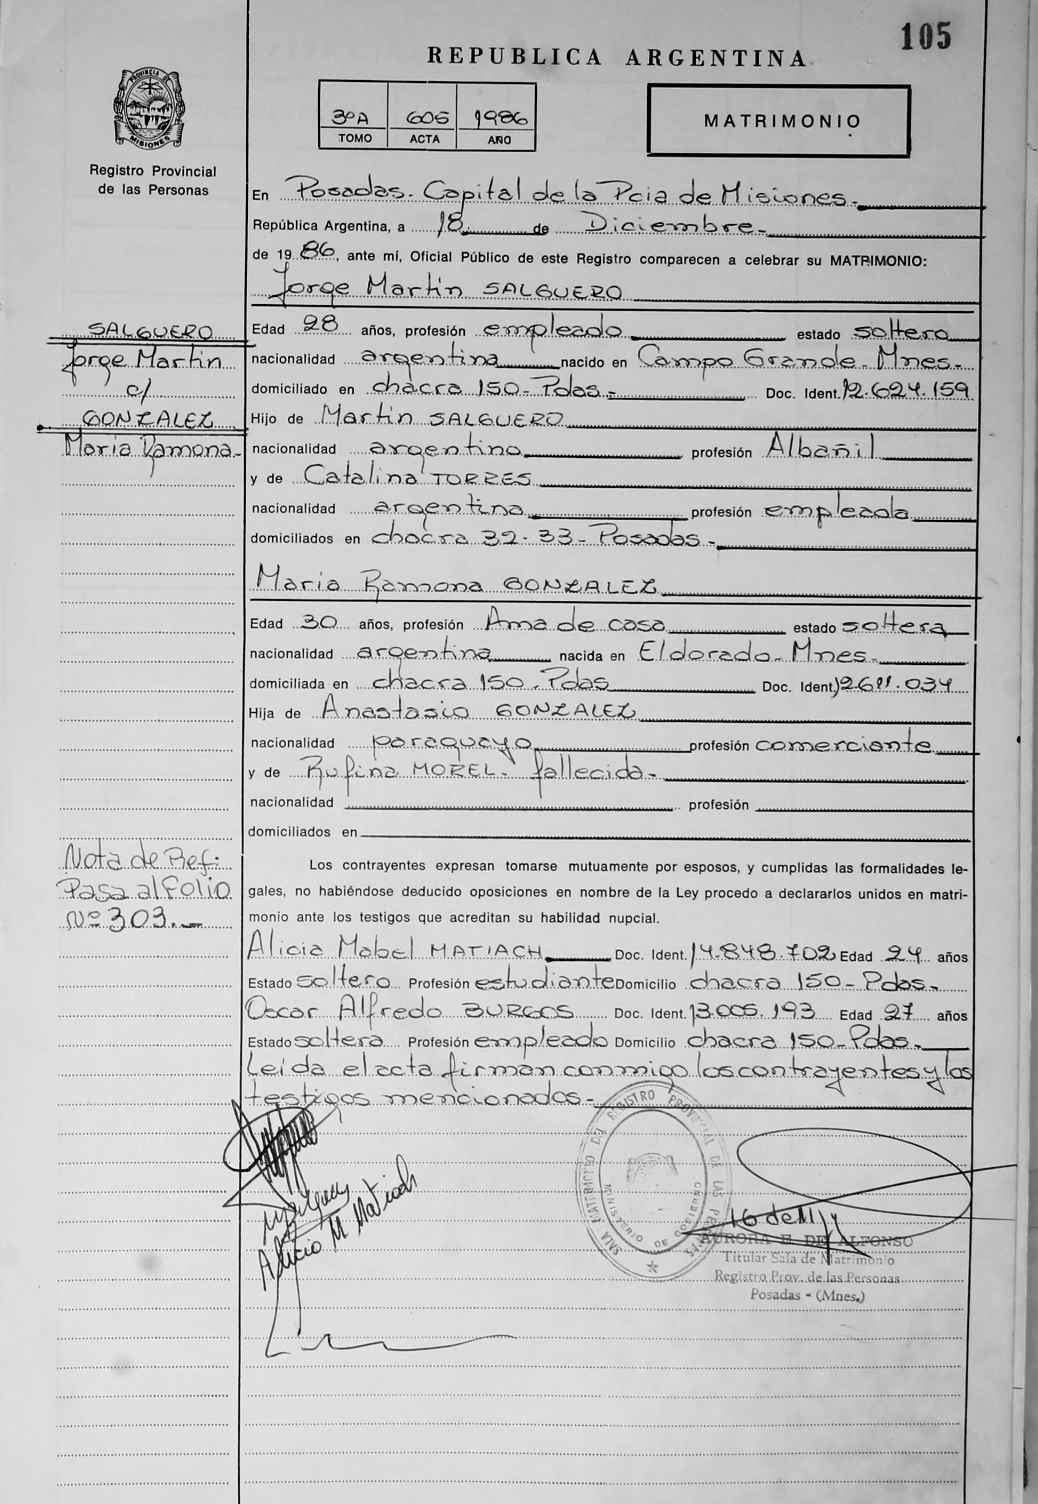 105
REPUBLICA ARGENTINA
PROVINCIA DE MISIONES
Registro Provincial
de las Personas
3ºA 605 1986
TOMO ACTA AÑO
MATRIMONIO
En Posadas. Capital de la Pcia de Misiones.
República Argentina, a 18 de Diciembre.
de 1986, ante mí, Oficial Público de este Registro comparecen a celebrar su MATRIMONIO:
Jorge Martin SALGUERO
SALGUERO
Jorge Martin
c/
GONZALEZ
Maria Ramona.
Edad 28 años, profesión empleado estado soltero
nacionalidad argentina nacido en Campo Grande. Mnes.
domiciliado en chacra 150 - Pdas. Doc. Ident. 12.624.159
Hijo de Martin SALGUERO
nacionalidad argentino profesión Albañil
y de Catalina TORRES
nacionalidad argentina profesión empleada
domiciliados en chacra 32-33 - Posadas.
Maria Ramona GONZALEZ
Edad 30 años, profesión Ama de casa estado soltera
nacionalidad argentina nacida en Eldorado - Mnes.
domiciliada en chacra 150 - Pdas Doc. Ident. 12.611.034
Hija de Anastasio GONZALEZ
nacionalidad paraguayo profesión comerciante
y de Rufina MOREL. fallecida.
nacionalidad profesión
domiciliados en
Nota de Ref:
Pasa al folio
Nº 303.-
Los contrayentes expresan tomarse mutuamente por esposos, y cumplidas las formalidades le-
gales, no habiéndose deducido oposiciones en nombre de la Ley procedo a declararlos unidos en matri-
monio ante los testigos que acreditan su habilidad nupcial.
Alicia Mabel MATIACH Doc. Ident. 14.848.702 Edad 24 años
Estado soltero Profesión estudiante Domicilio chacra 150 - Pdas.
Oscar Alfredo BURGOS Doc. Ident. 13.005.193 Edad 27 años
Estado soltera Profesión empleado Domicilio chacra 150 - Pdas.
Leída el acta firman conmigo los contrayentes y los
testigos mencionados.
Alicia M Matiach
SALA MATRIMONIO DEL REGISTRO PROVINCIAL DE LAS PERSONAS
MINISTERIO DE GOBIERNO
AURORA H DE ALFONSO
Titular Sala de Matrimonio
Registro Prov. de las Personas
Posadas - (Mnes.)